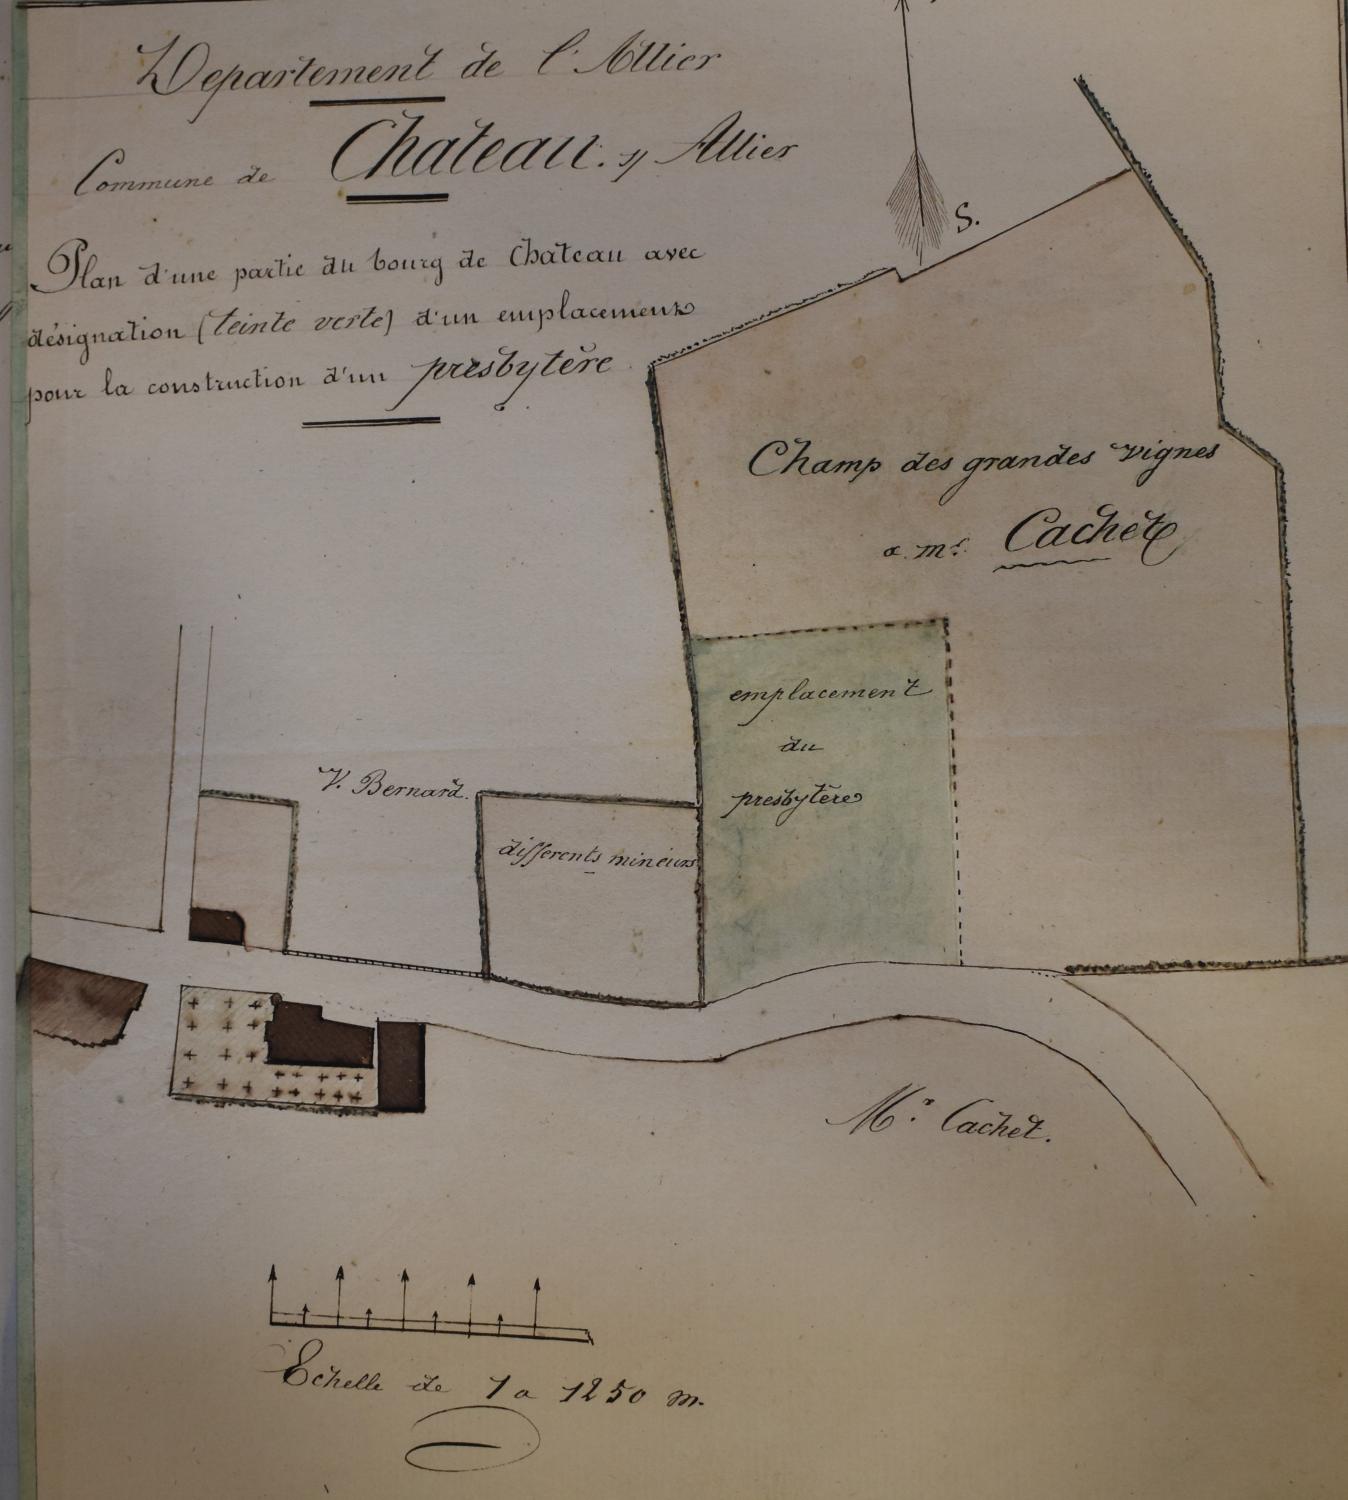 Departement de l'Allier
Commune de Chateau. s/ Allier
Plan d'une partie du bourg de Chateau avec
désignation (teinte verte) d'un emplacement
pour la construction d'un presbytère
S.
Champ des grandes vignes
a. mr. Cachet
emplacement
du
presbytère
V. Bernard.
differents mineurs
Mr. Cachet.
Echelle de 1 a 1250 m.